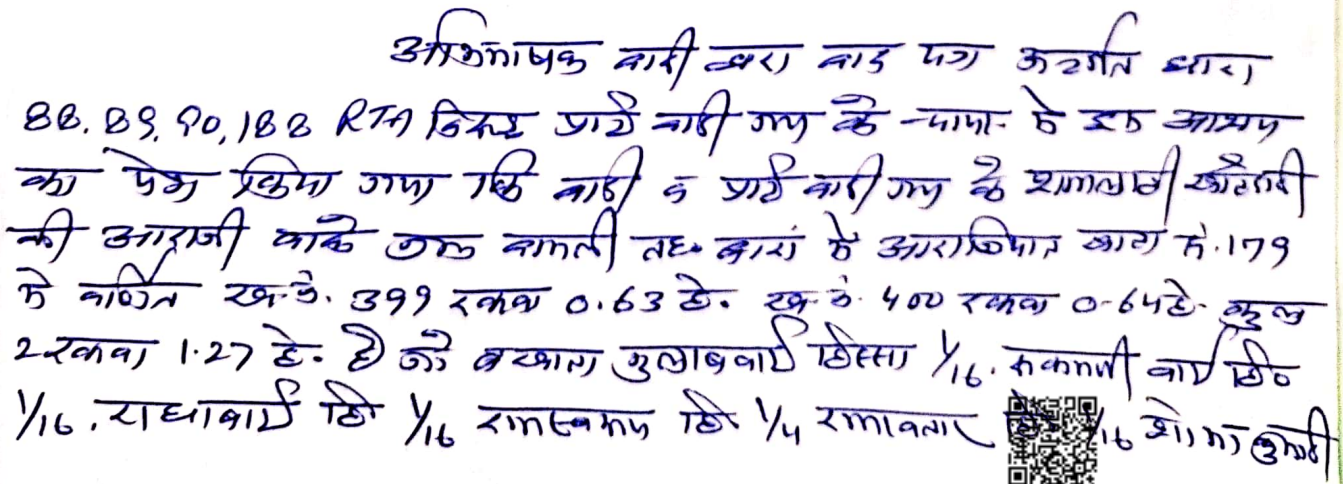 अभिभाषक वादी द्वारा वाद पत्र अन्तर्गत धारा
88, 89, 90, 188 RTA विरूद्ध प्रति वादी गण के न्याया. में इस आशय
का पेश किया गया कि वादी व प्रति वादी गण के शामलाती खातेदारी
की आराजी वाके ग्राम बामली तह. बारां में आराजियात खाता नं. 179
में वर्णित ख.नं. 399 रकबा 0.63 हे. ख.नं. 400 रकबा 0.64 हे. कुल
2 रकबा 1.27 हे. है जो बखाता गुलाबबाई हिस्सा 1/16, रूकमणी बाई हि०
1/16, राधाबाई हि० 1/16 रामस्वरूप हि० 1/4 रामावतार 1/16 शोभा कुमारी